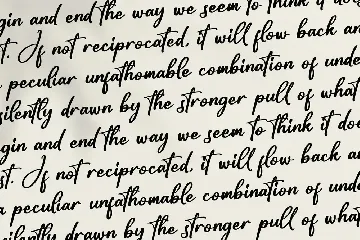 gin and end the way we seem to think it doe
t. If not reciprocated, it will flow back an
peculiar unfathomable combination of unde
silently drawn by the stronger pull of what
gin and end the way we seem to think it doe
st. If not reciprocated, it will flow back an
a peculiar unfathomable combination of und
silently drawn by the stronger pull of what